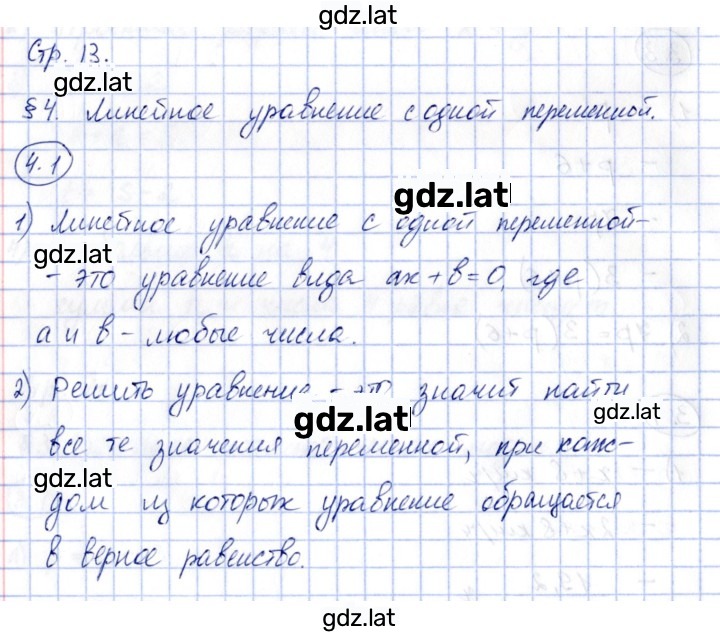 gdz.lat
Стр. 13.
gdz.lat
§4. Линейное уравнение с одной переменной.
4.1
gdz.lat
1) Линейное уравнение с одной переменной-
gdz.lat
- это уравнение вида ax+b=0, где
a и b - любые числа.
2) Решить уравнение - это значит найти
gdz.lat
gdz.lat
все те значения переменной, при каж-
gdz.lat
дом из которых уравнение обращается
в верное равенство.
gdz.lat
gdz.lat